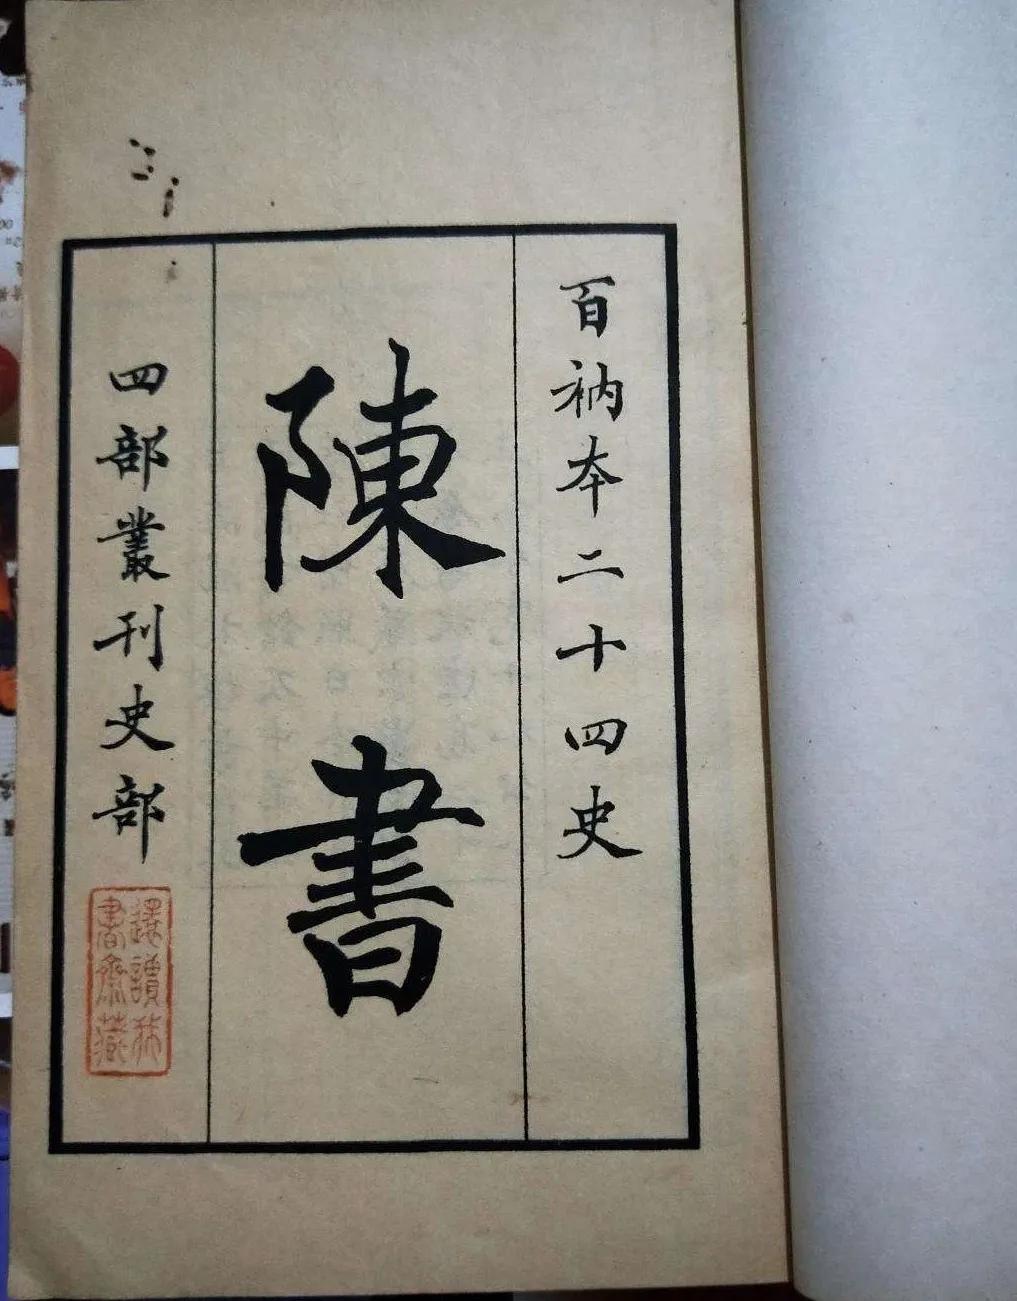 百衲本二十四史
陳書
四部叢刊史部
書齋藏